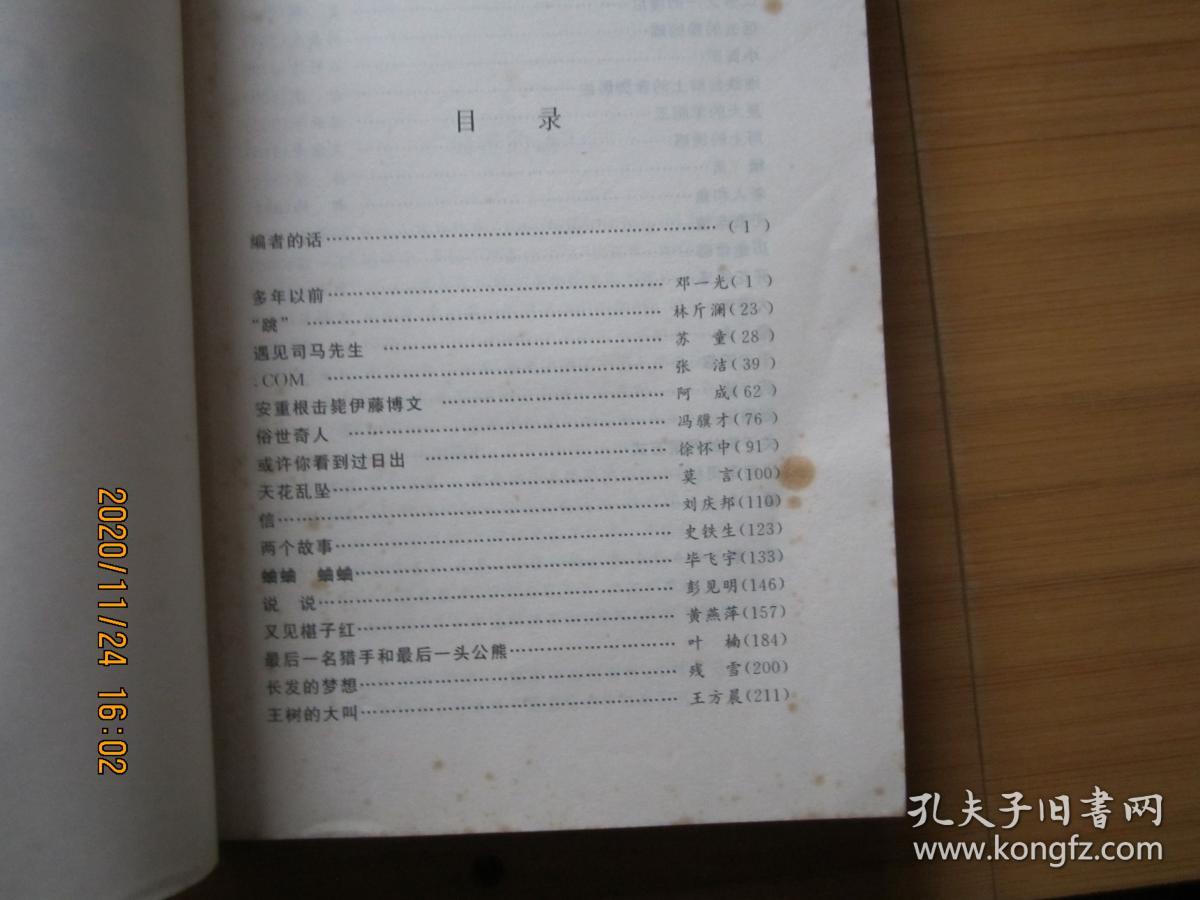 目 录
编者的话……………………………………………………( 1 )
多年以前………………………………………………邓一光( 1 )
“跳” ………………………………………………林斤澜( 23 )
遇见司马先生 ………………………………………苏 童( 28 )
.COM ………………………………………………张 洁( 39 )
安重根击毙伊藤博文 ………………………………阿 成( 62 )
俗世奇人 ……………………………………………冯骥才( 76 )
或许你看到过日出 …………………………………徐怀中( 91 )
天花乱坠………………………………………………莫 言(100)
信………………………………………………………刘庆邦(110)
两个故事………………………………………………史铁生(123)
蛐蛐 蛐蛐……………………………………………毕飞宇(133)
说 说…………………………………………………彭见明(146)
又见椹子红……………………………………………黄燕萍(157)
最后一名猎手和最后一头公熊………………………叶 楠(184)
长发的梦想……………………………………………残 雪(200)
王树的大叫……………………………………………王方晨(211)
2020/11/24 16:02
孔夫子旧书网
www.kongfz.com